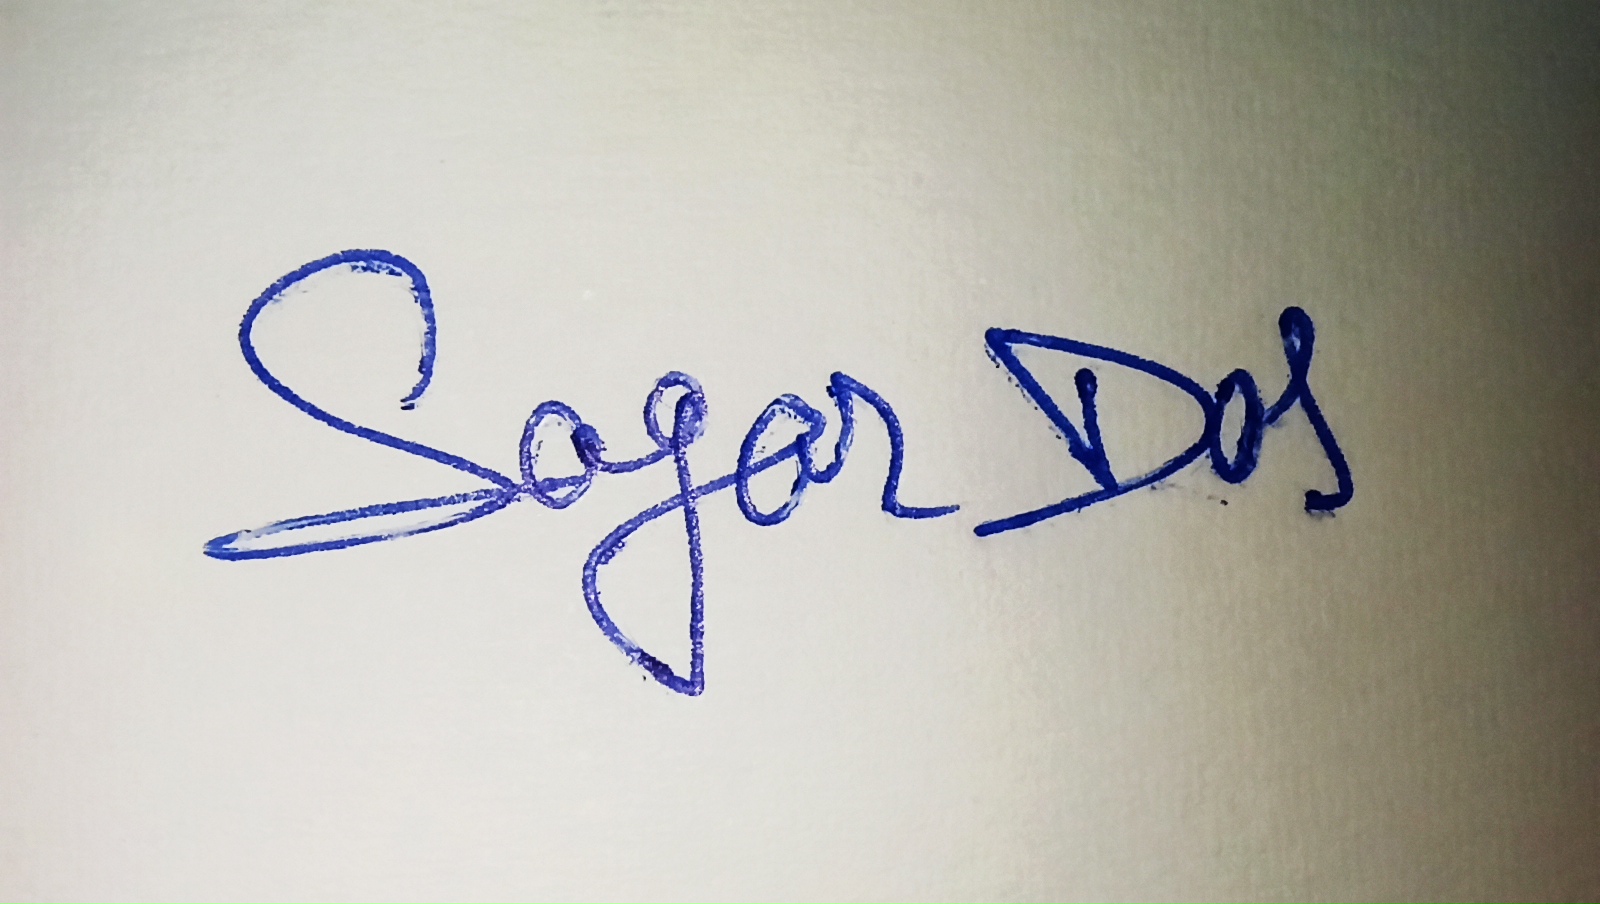 Sagar Das